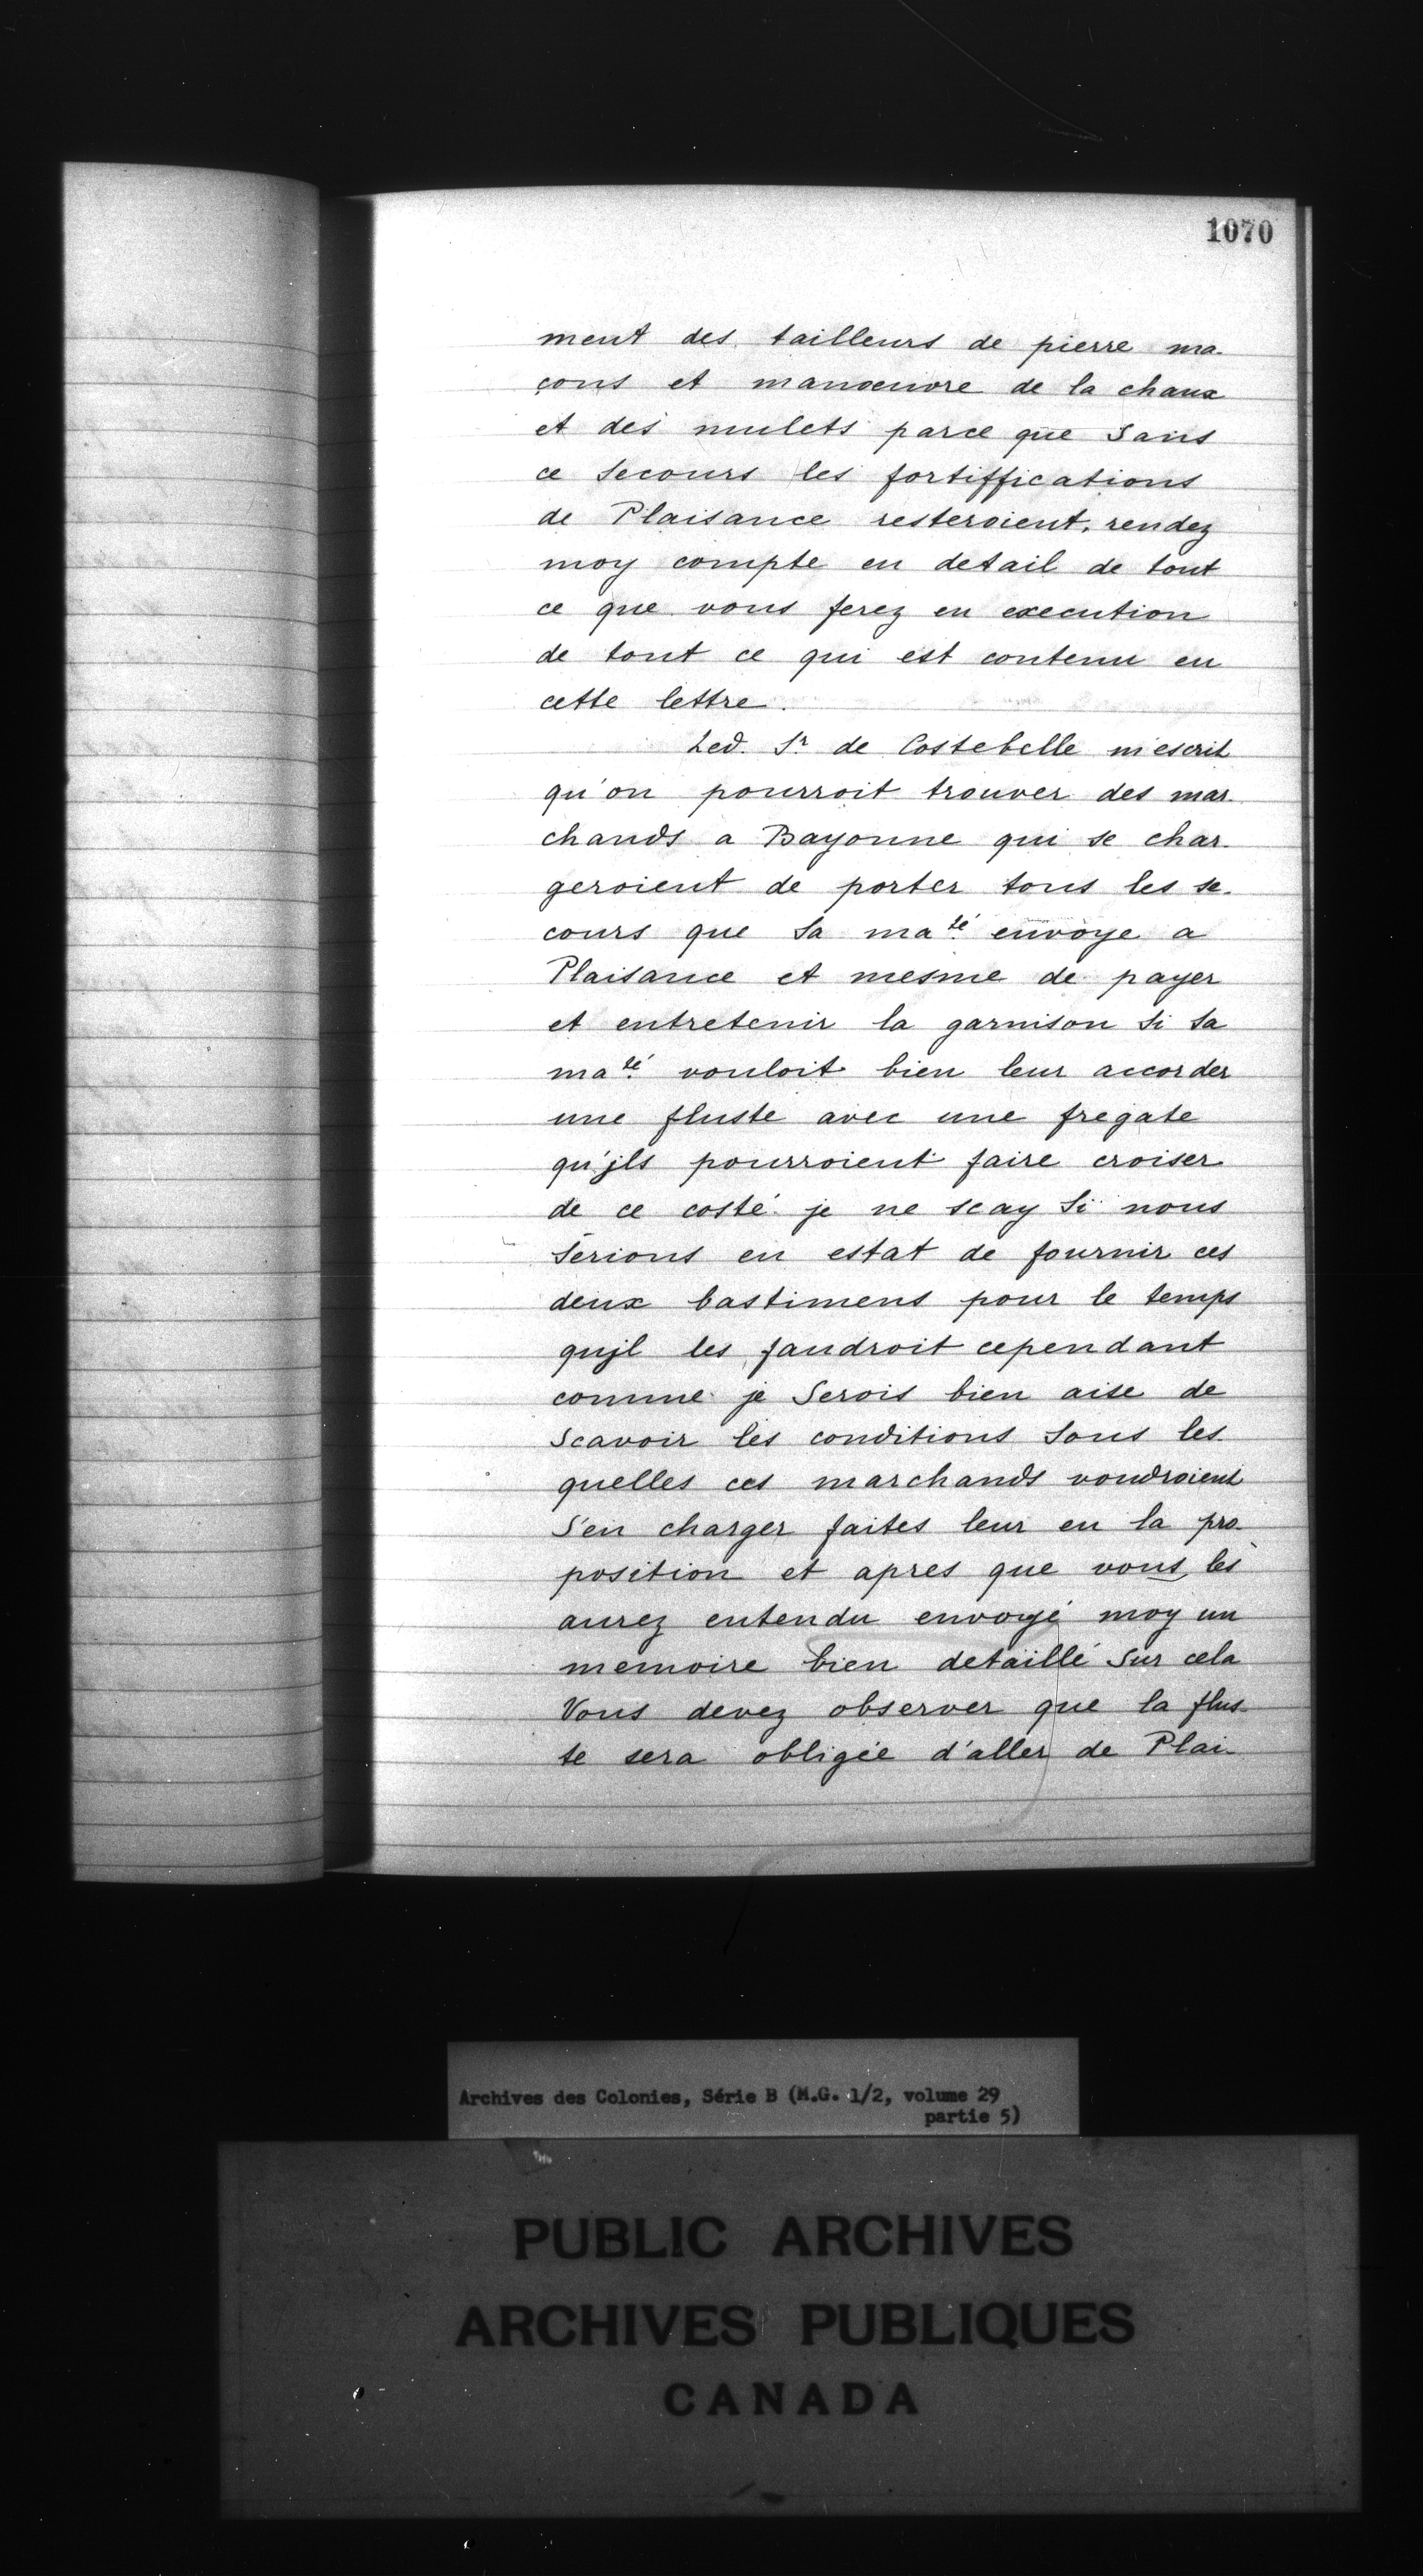 1070
ment des tailleurs de pierre ma-
çons et manœuvre de la chaux
et des mulets parce que sans
ce secours les fortiffications
de Plaisance resteroient, rendez
moy compte en detail de tout
ce que vous ferez en execution
de tout ce qui est contenu en
cette lettre.
Led. Sr de Costebelle m'escrit
qu'on pourroit trouver des mar-
chands a Bayonne qui se char-
geroient de porter tous les se-
cours que sa maté envoye a
Plaisance et mesme de payer
et entretenir la garnison si sa
maté vouloit bien leur accorder
une fluste avec une fregate
qu'jls pourroient faire croiser
de ce costé je ne scay si nous
serions en estat de fournir ces
deux bastimens pour le temps
qujl les faudroit cependant
comme je serois bien aise de
scavoir les conditions sous les
quelles ces marchands voudroient
s'en charger faites leur en la pro-
position et apres que vous les
aurez entendu envoyé moy un
memoire bien detaillé sur cela
Vous devez observer que la flus-
te sera obligée d'aller de Plai-
Archives des Colonies, Série B (M.G. 1/2, volume 29
partie 5)
PUBLIC ARCHIVES
ARCHIVES PUBLIQUES
CANADA